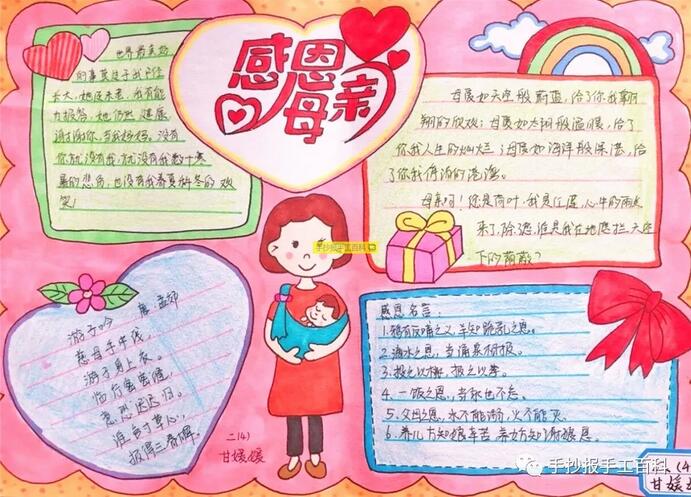 感恩母亲
世界最美好
的事莫过于我已经
长大,她还未老,我有能
力报答,她仍然健康。
谢谢你,当我妈妈。没有
你就没有我,就没有我数十寒
暑的悲伤,也没有我春夏秋冬的欢
笑!
母爱如天空般蔚蓝,给了你我翱
翔的欣欢;母爱如太阳般温暖,给了
你我人生的灿烂;母爱如海洋般深湛,给
了你我停泊的港湾。
母亲啊!您是荷叶,我是红莲,心中的雨点
来了,除了您,谁是我在
下的荫蔽?
手抄报手工百科
游子吟
唐·孟郊
慈母手中线,
游子身上衣。
临行密密缝,
意恐迟迟归。
谁言寸草心,
报得三春晖。
二(4)
甘媛媛
感恩名言:
1.鸦有反哺之义,羊知跪乳之恩。
2.滴水之恩,当涌泉相报。
3.投之以桃,报之以李。
4.一饭之恩,当永世不忘。
5.父母之恩,水不能溺,火不能灭。
6.养儿方知娘辛苦,养女方知谢娘恩。
手抄报手工百科
(4
甘媛